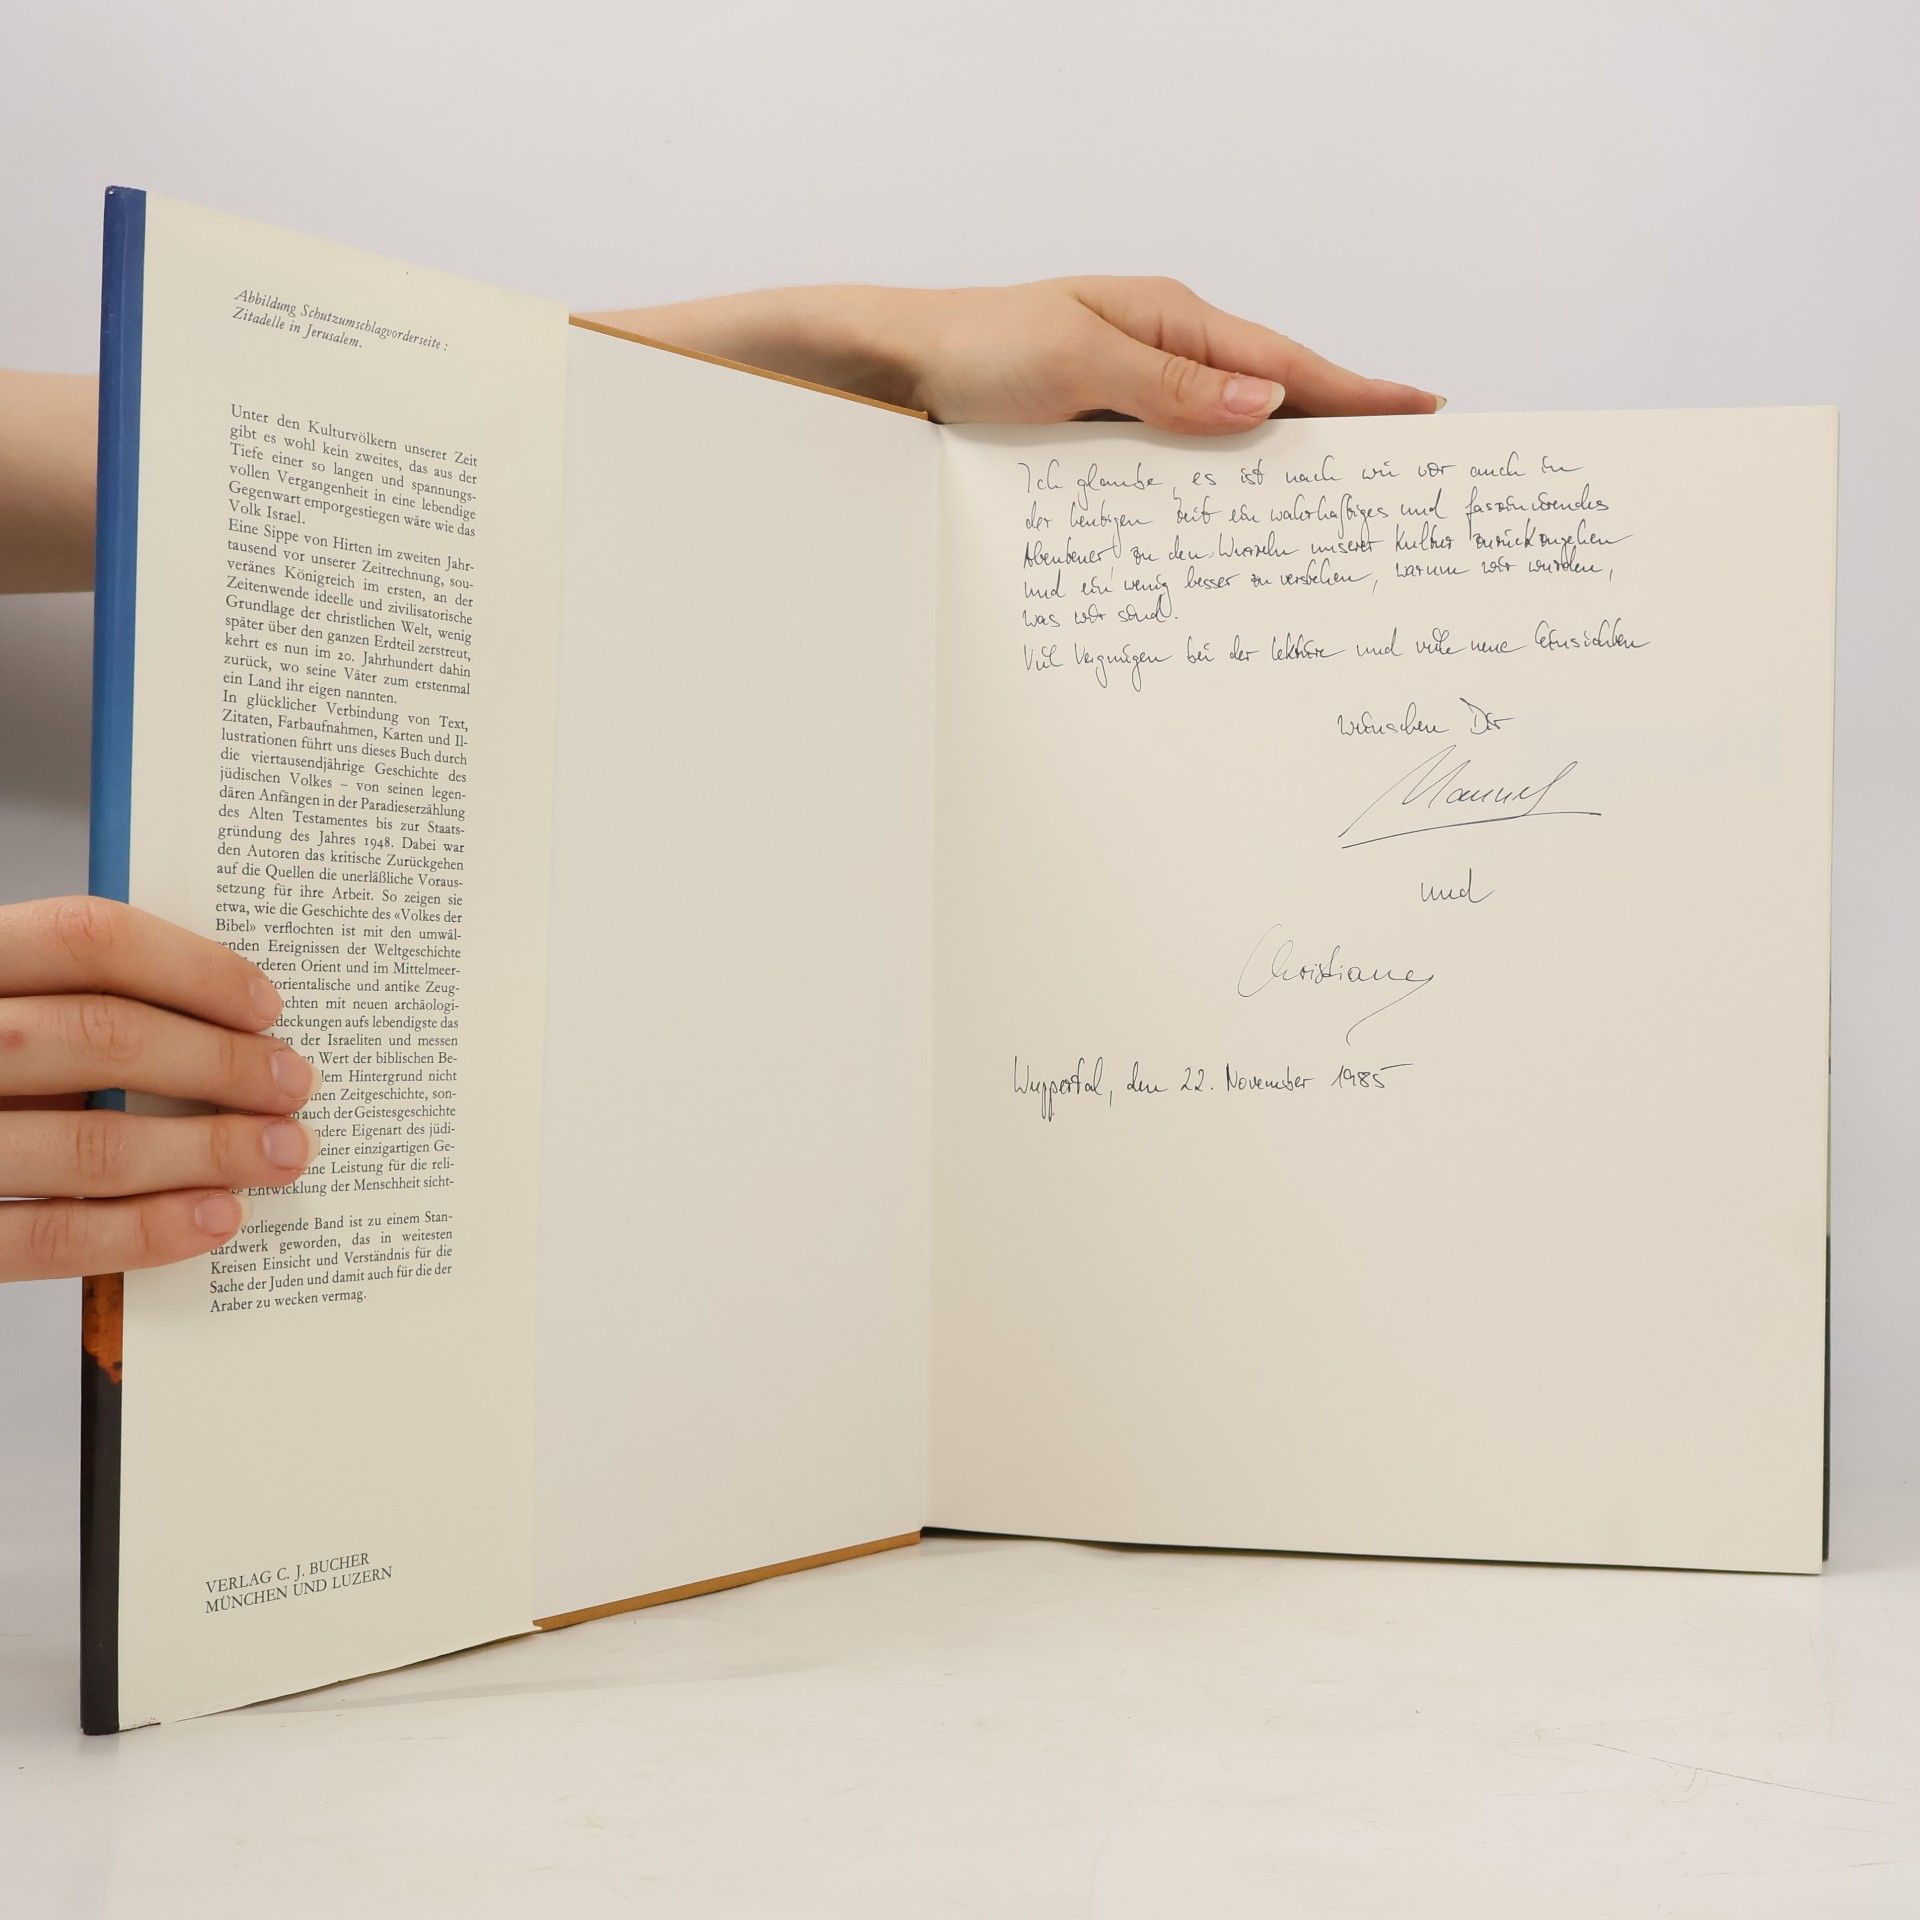 Abbildung Schutzumschlagvorderseite :
Zitadelle in Jerusalem.
Unter den Kulturvölkern unserer Zeit
gibt es wohl kein zweites, das aus der
Tiefe einer so langen und spannungs-
vollen Vergangenheit in eine lebendige
Gegenwart emporgestiegen wäre wie das
Volk Israel.
Eine Sippe von Hirten im zweiten Jahr-
tausend vor unserer Zeitrechnung, sou-
veränes Königreich im ersten, an der
Zeitenwende ideelle und zivilisatorische
Grundlage der christlichen Welt, wenig
später über den ganzen Erdteil zerstreut,
kehrt es nun im 20. Jahrhundert dahin
zurück, wo seine Väter zum erstenmal
ein Land ihr eigen nannten.
In glücklicher Verbindung von Text,
Zitaten, Farbaufnahmen, Karten und Il-
lustrationen führt uns dieses Buch durch
die viertausendjährige Geschichte des
jüdischen Volkes – von seinen legen-
dären Anfängen in der Paradieserzählung
des Alten Testamentes bis zur Staats-
gründung des Jahres 1948. Dabei war
den Autoren das kritische Zurückgehen
auf die Quellen die unerläßliche Voraus-
setzung für ihre Arbeit. So zeigen sie
etwa, wie die Geschichte des «Volkes der
Bibel» verflochten ist mit den umwäl-
zenden Ereignissen der Weltgeschichte
orderen Orient und im Mittelmeer-
torientalische und antike Zeug-
uchten mit neuen archäologi-
deckungen aufs lebendigste das
en der Israeliten und messen
n Wert der biblischen Be-
dem Hintergrund nicht
inen Zeitgeschichte, son-
auch der Geistesgeschichte
ndere Eigenart des jüdi-
seiner einzigartigen Ge-
ine Leistung für die reli-
Entwicklung der Menschheit sicht-
vorliegende Band ist zu einem Stan-
dardwerk geworden, das in weitesten
Kreisen Einsicht und Verständnis für die
Sache der Juden und damit auch für die der
Araber zu wecken vermag.
VERLAG C. J. BUCHER
MÜNCHEN UND LUZERN
Ich glaube, es ist nach wie vor auch in
der heutigen Zeit ein wahrhaftiges und faszinierendes
Abenteuer, zu den Wurzeln unserer Kultur zurückzugehen
und ein wenig besser zu verstehen, warum wir wurden,
was wir sind.
Viel Vergnügen bei der Lektüre und viele neue Einsichten
wünschen Dir
Manuel
und
Christiane
Wuppertal, den 22. November 1985